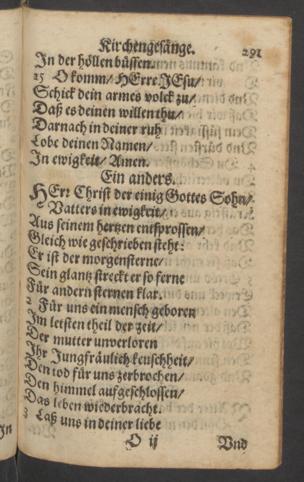 Kirchengesänge. 291
In der höllen büssen.
25 O komm/ HErre JEsu/
Schick dein armes volck zu/
Daß es deinen willen thu/
Darnach in deiner ruh
Lobe deinen Namen/
In ewigkeit/ Amen.
Ein anders.
HErr Christ der einig Gottes Sohn/
Vatters in ewigkeit/
Aus seinem hertzen entsprossen/
Gleich wie geschrieben steht:
Er ist der morgensterne/
Sein glantz streckt er so ferne
Für andern sternen klar.
2 Für uns ein mensch geboren
Im letsten theil der zeit/
Der mutter unverloren
Ihr Jungfräulich keuschheit/
Den tod für uns zerbrochen/
Den himmel aufgeschlossen/
Das leben wiederbracht.
3 Laß uns in deiner liebe
O ij Vnd